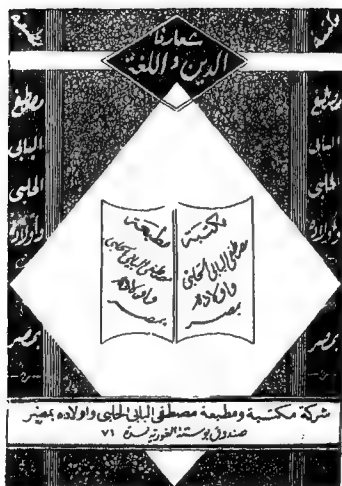 شعارنا
الدين واللغة
مكتبة
مصطفى
البابى
الحلبى
وأولاده
بمصر
مكتبة
مصطفى البابى الحلبى
وأولاده
بمصر
مطبعة
مصطفى البابى الحلبى
وأولاده
بمصر
مكتبة
مصطفى
البابى
الحلبى
وأولاده
بمصر
شركة مكتبة ومطبعة مصطفى البابى الحلبى واولاده بمصر
صندوق بوستة الغورية نمرة ٧١